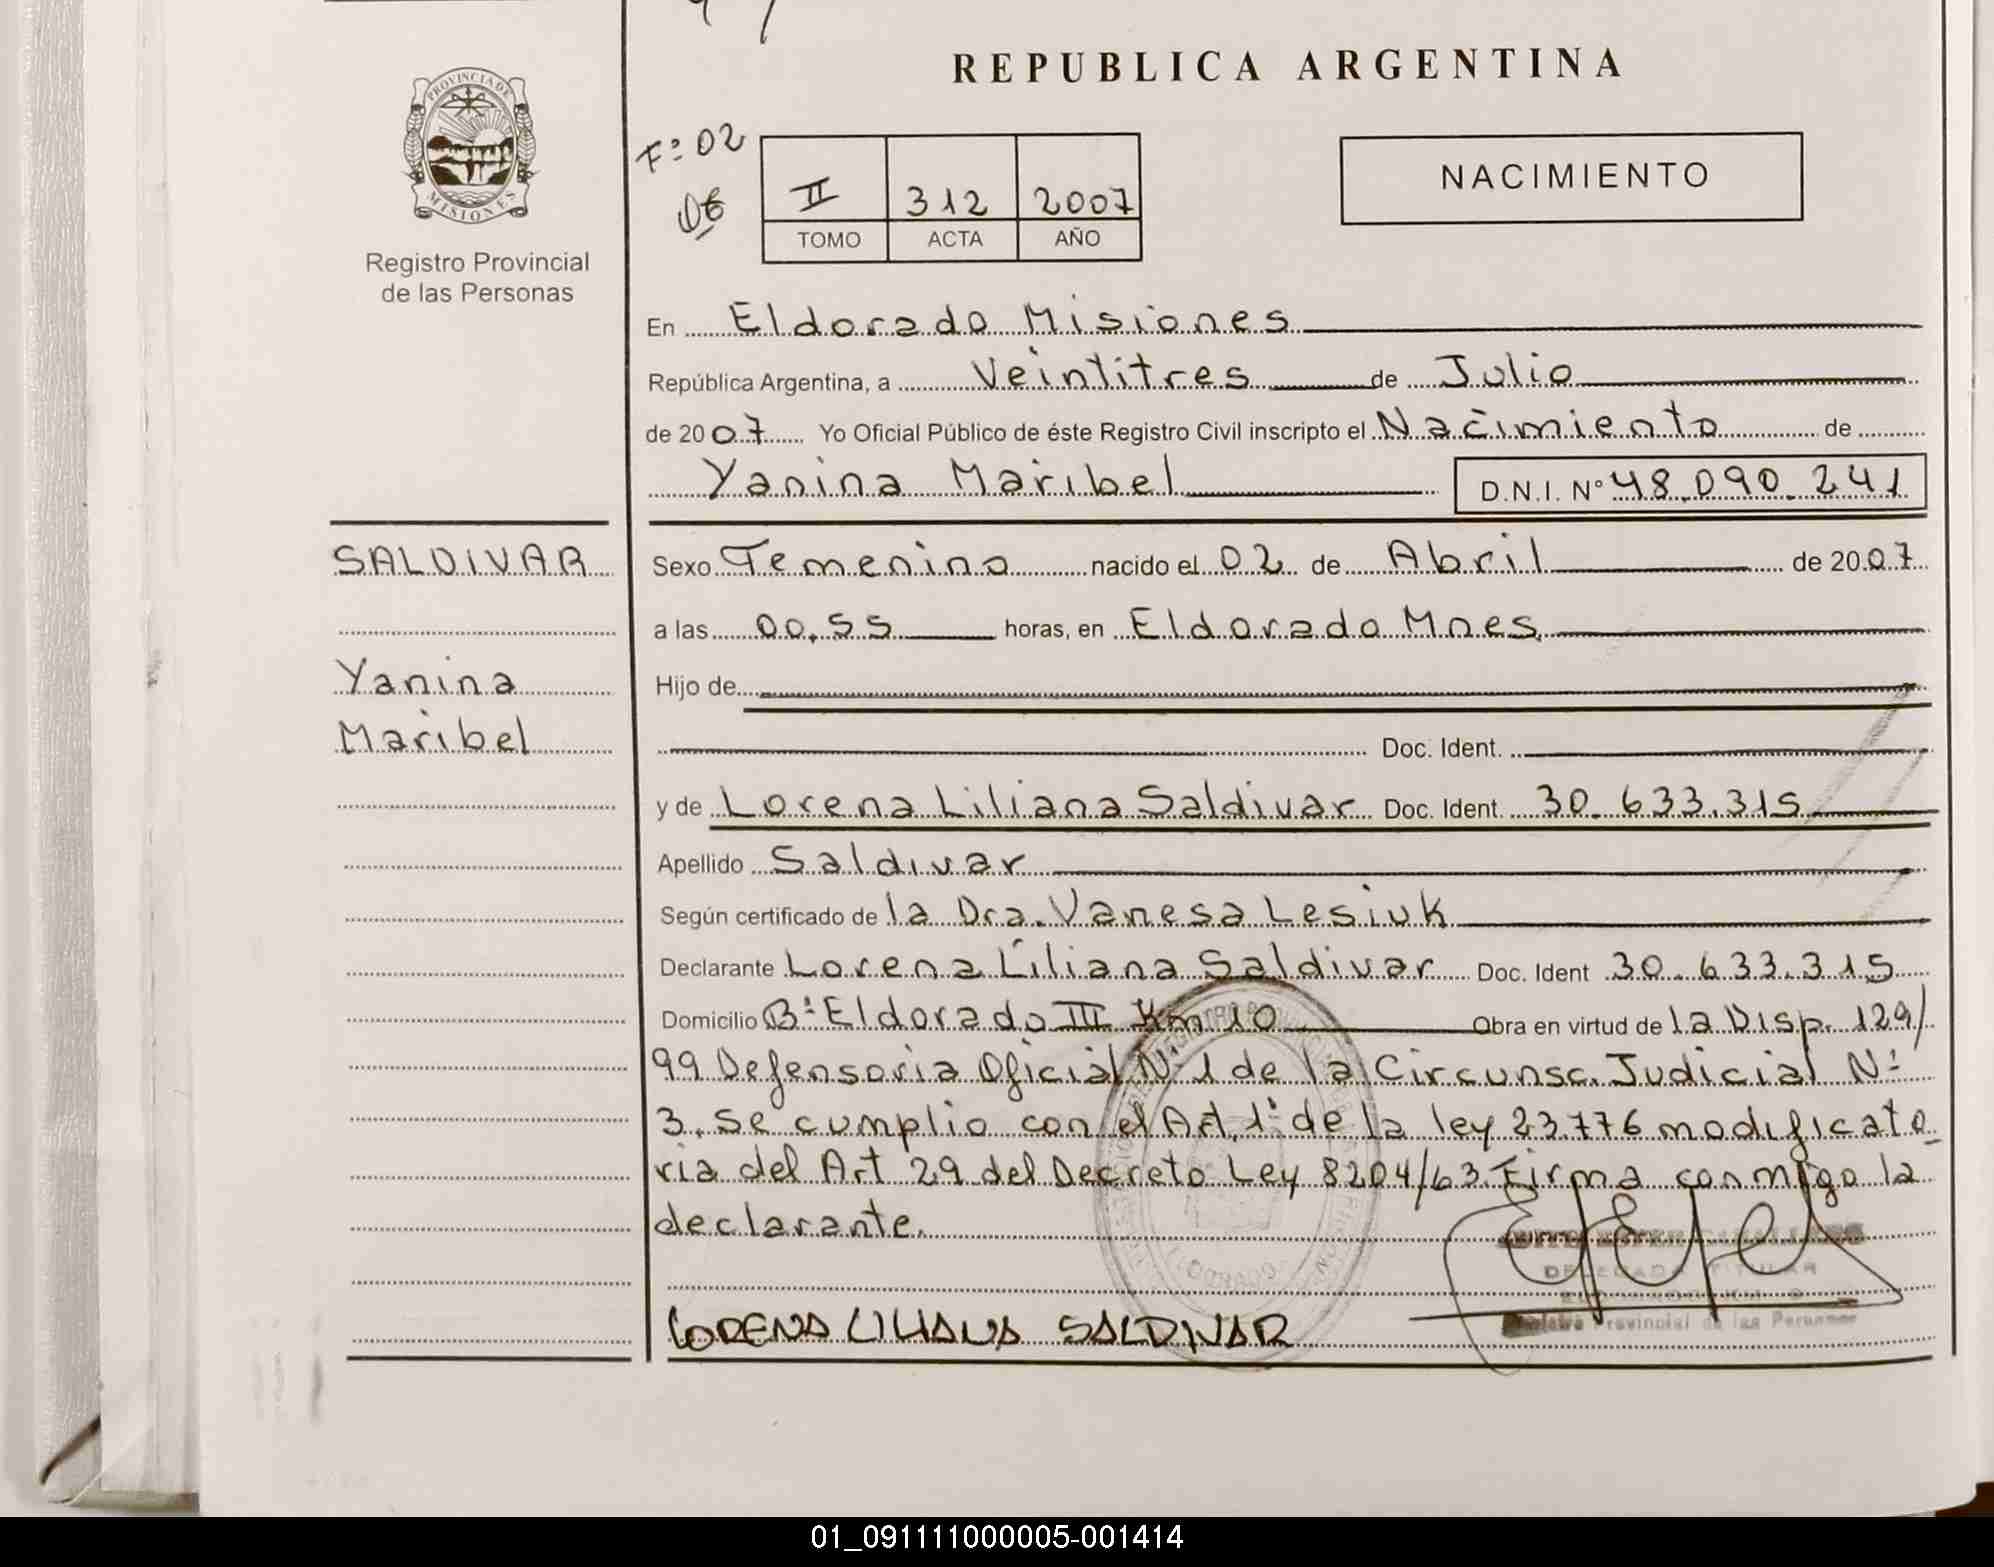 REPUBLICA ARGENTINA
PROVINCIA DE MISIONES
Registro Provincial
de las Personas
Fº 02
II 312 2007
TOMO ACTA AÑO
NACIMIENTO
En Eldorado Misiones
República Argentina, a Veintitres de Julio
de 2007 Yo Oficial Público de éste Registro Civil inscripto el Nacimiento de
Yanina Maribel D.N.I. Nº 48.090.241
SALDIVAR
Yanina
Maribel
Sexo Femenino nacido el 02 de Abril de 2007
a las 00,55 horas, en Eldorado Mnes.
Hijo de
Doc. Ident.
y de Lorena Liliana Saldivar Doc. Ident. 30.633.315
Apellido Saldivar
Según certificado de la Dra. Vanesa Lesiuk
Declarante Lorena Liliana Saldivar Doc. Ident 30.633.315
Domicilio Bº Eldorado III Km 10 Obra en virtud de la Disp. 129/
99 Defensoria Oficial Nº 1 de la Circunsc. Judicial Nº
3. Se cumplio con el Art. 1º de la ley 23.776 modificato
ria del Art 29 del Decreto Ley 8204/63. Firma conmigo la
declarante.
DELEGADA TITULAR
Provincial de las Personas
LORENA LILIANA SALDIVAR
01_091111000005-001414